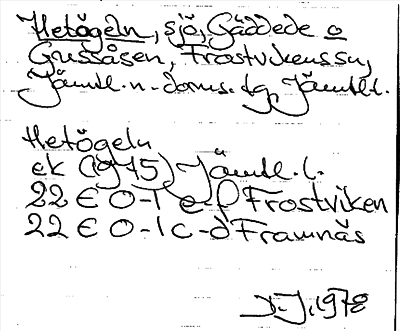 Hetögeln, sjö, Gäddede o
Gussåsen, Frostvikenssn,
Jämtl. n. doms. tg, Jämtl.l.
Hetögeln
ek (1975) Jämtl. l.
22 E 0-1 e-f Frostviken
22 E 0-1 c-d Framnäs
D.J. 1978